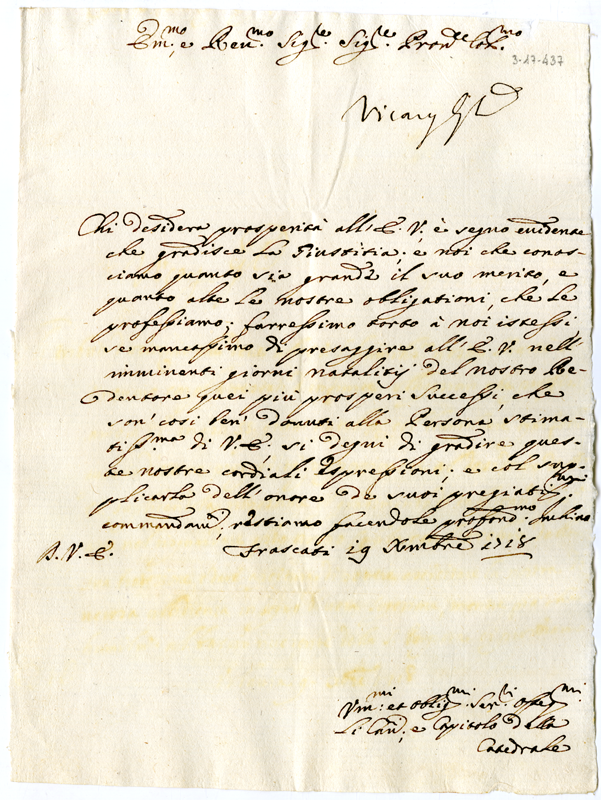 Em.mo e Reu.mo Sig.re Sig.re Pron.e Col.mo
3-17-437
Chi desidera prosperità all'E. V. è segno euidente
che gradisce la Giustitia; e noi che conos-
ciamo quanto sia grande il suo merito, e
quanto alte le nostre obligationi, che le
professiamo; farressimo torto à noi istessi,
se mancassimo di presaggire all'E. V. nell'
imminenti giorni natalitij del nostro Re-
dentore quei più prosperi successi, che
son' cosi ben' douuti alla Persona stima-
tiss.ma di V. E., si degni di gradire ques-
te nostre cordiali espressioni; e col sup-
plicarla dell'onore de suoi pregiatis.mi
commandam.ti, restiamo facendole profond.mo inchino
D. V. E. Frascati 19 Xmbre 1718
Vm.mi et oblig.mi Ser.ri osseq.mi
Li Can.ci e Capitolo della
Catedrale